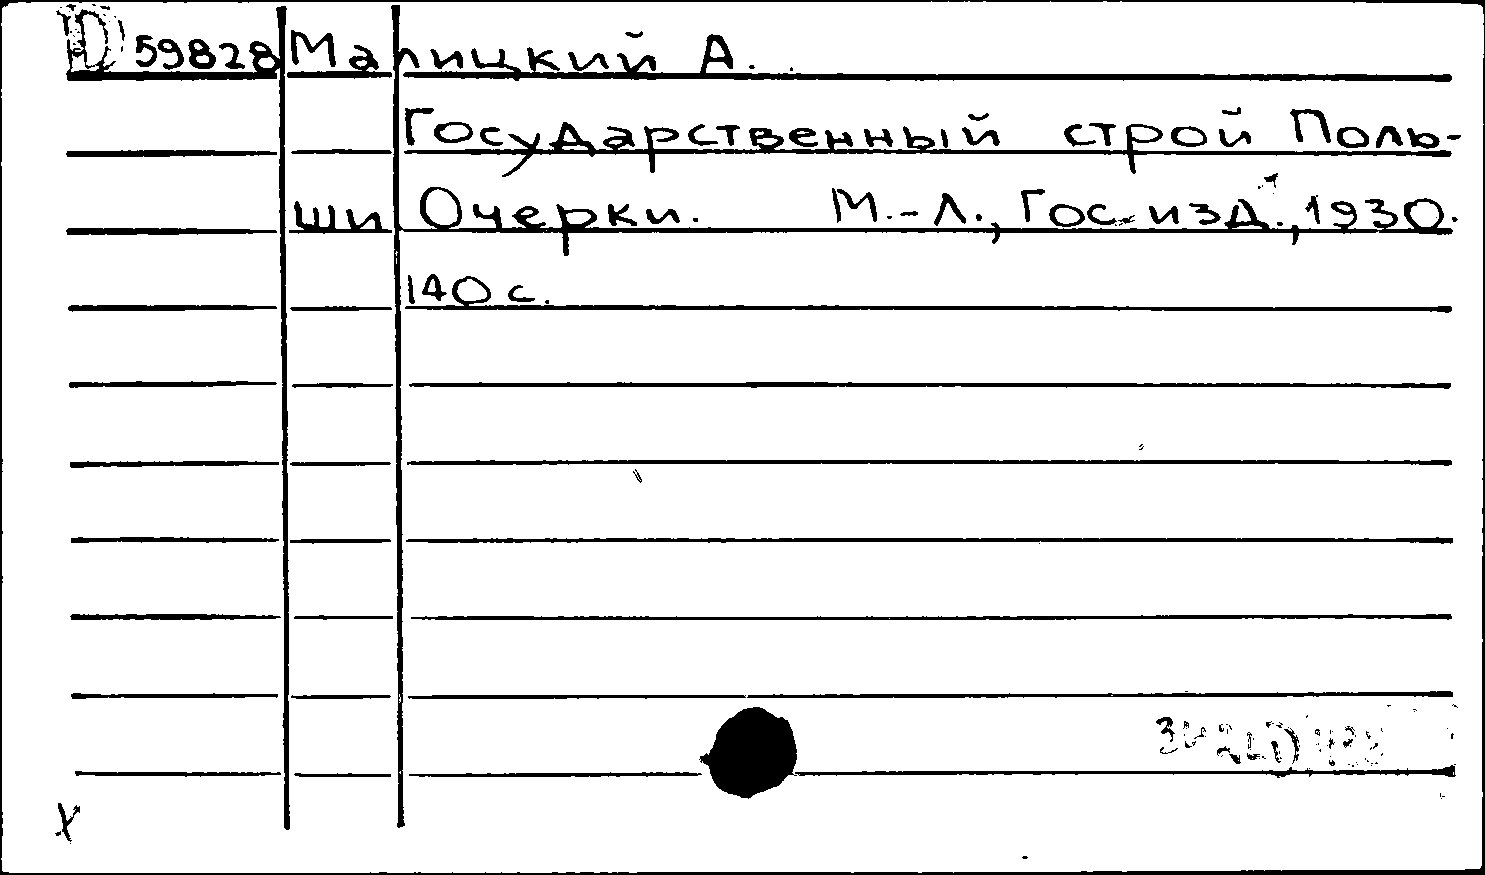 D 59828 Малицкий А.
Государственный строй Поль-
ши Очерки. М.-Л., Гос. изд., 1930.
140 с.